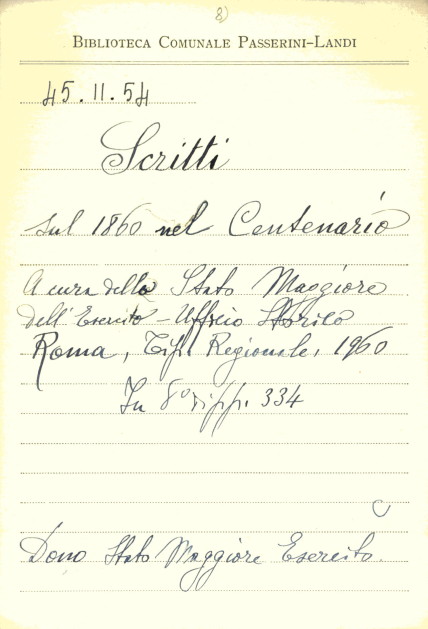 8)
BIBLIOTECA COMUNALE PASSERINI-LANDI
45.11.54
Scritti
sul 1860 nel Centenario
A cura dello Stato Maggiore
dell'Esercito - Ufficio Storico
Roma, Tip. Regionale, 1960
In 8° pp. 334
C
Dono Stato Maggiore Esercito.